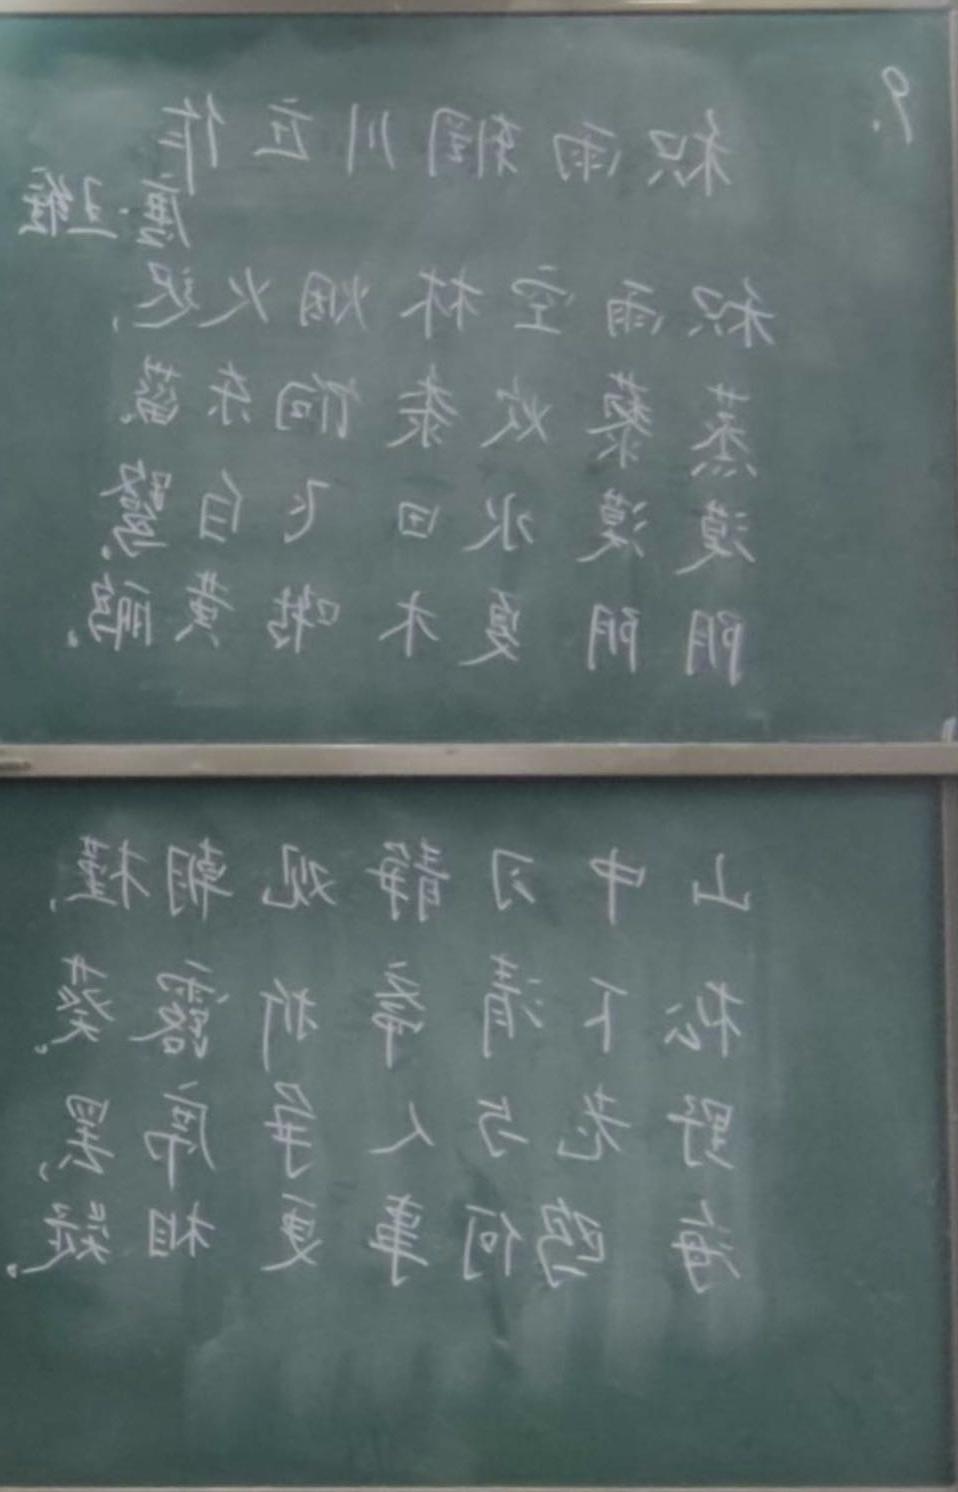 9.
积雨辋川庄作
唐·王维
积雨空林烟火迟,
蒸藜炊黍饷东菑。
漠漠水田飞白鹭,
阴阴夏木啭黄鹂。
山中习静观朝槿,
松下清斋折露葵。
野老与人争席罢,
海鸥何事更相疑。